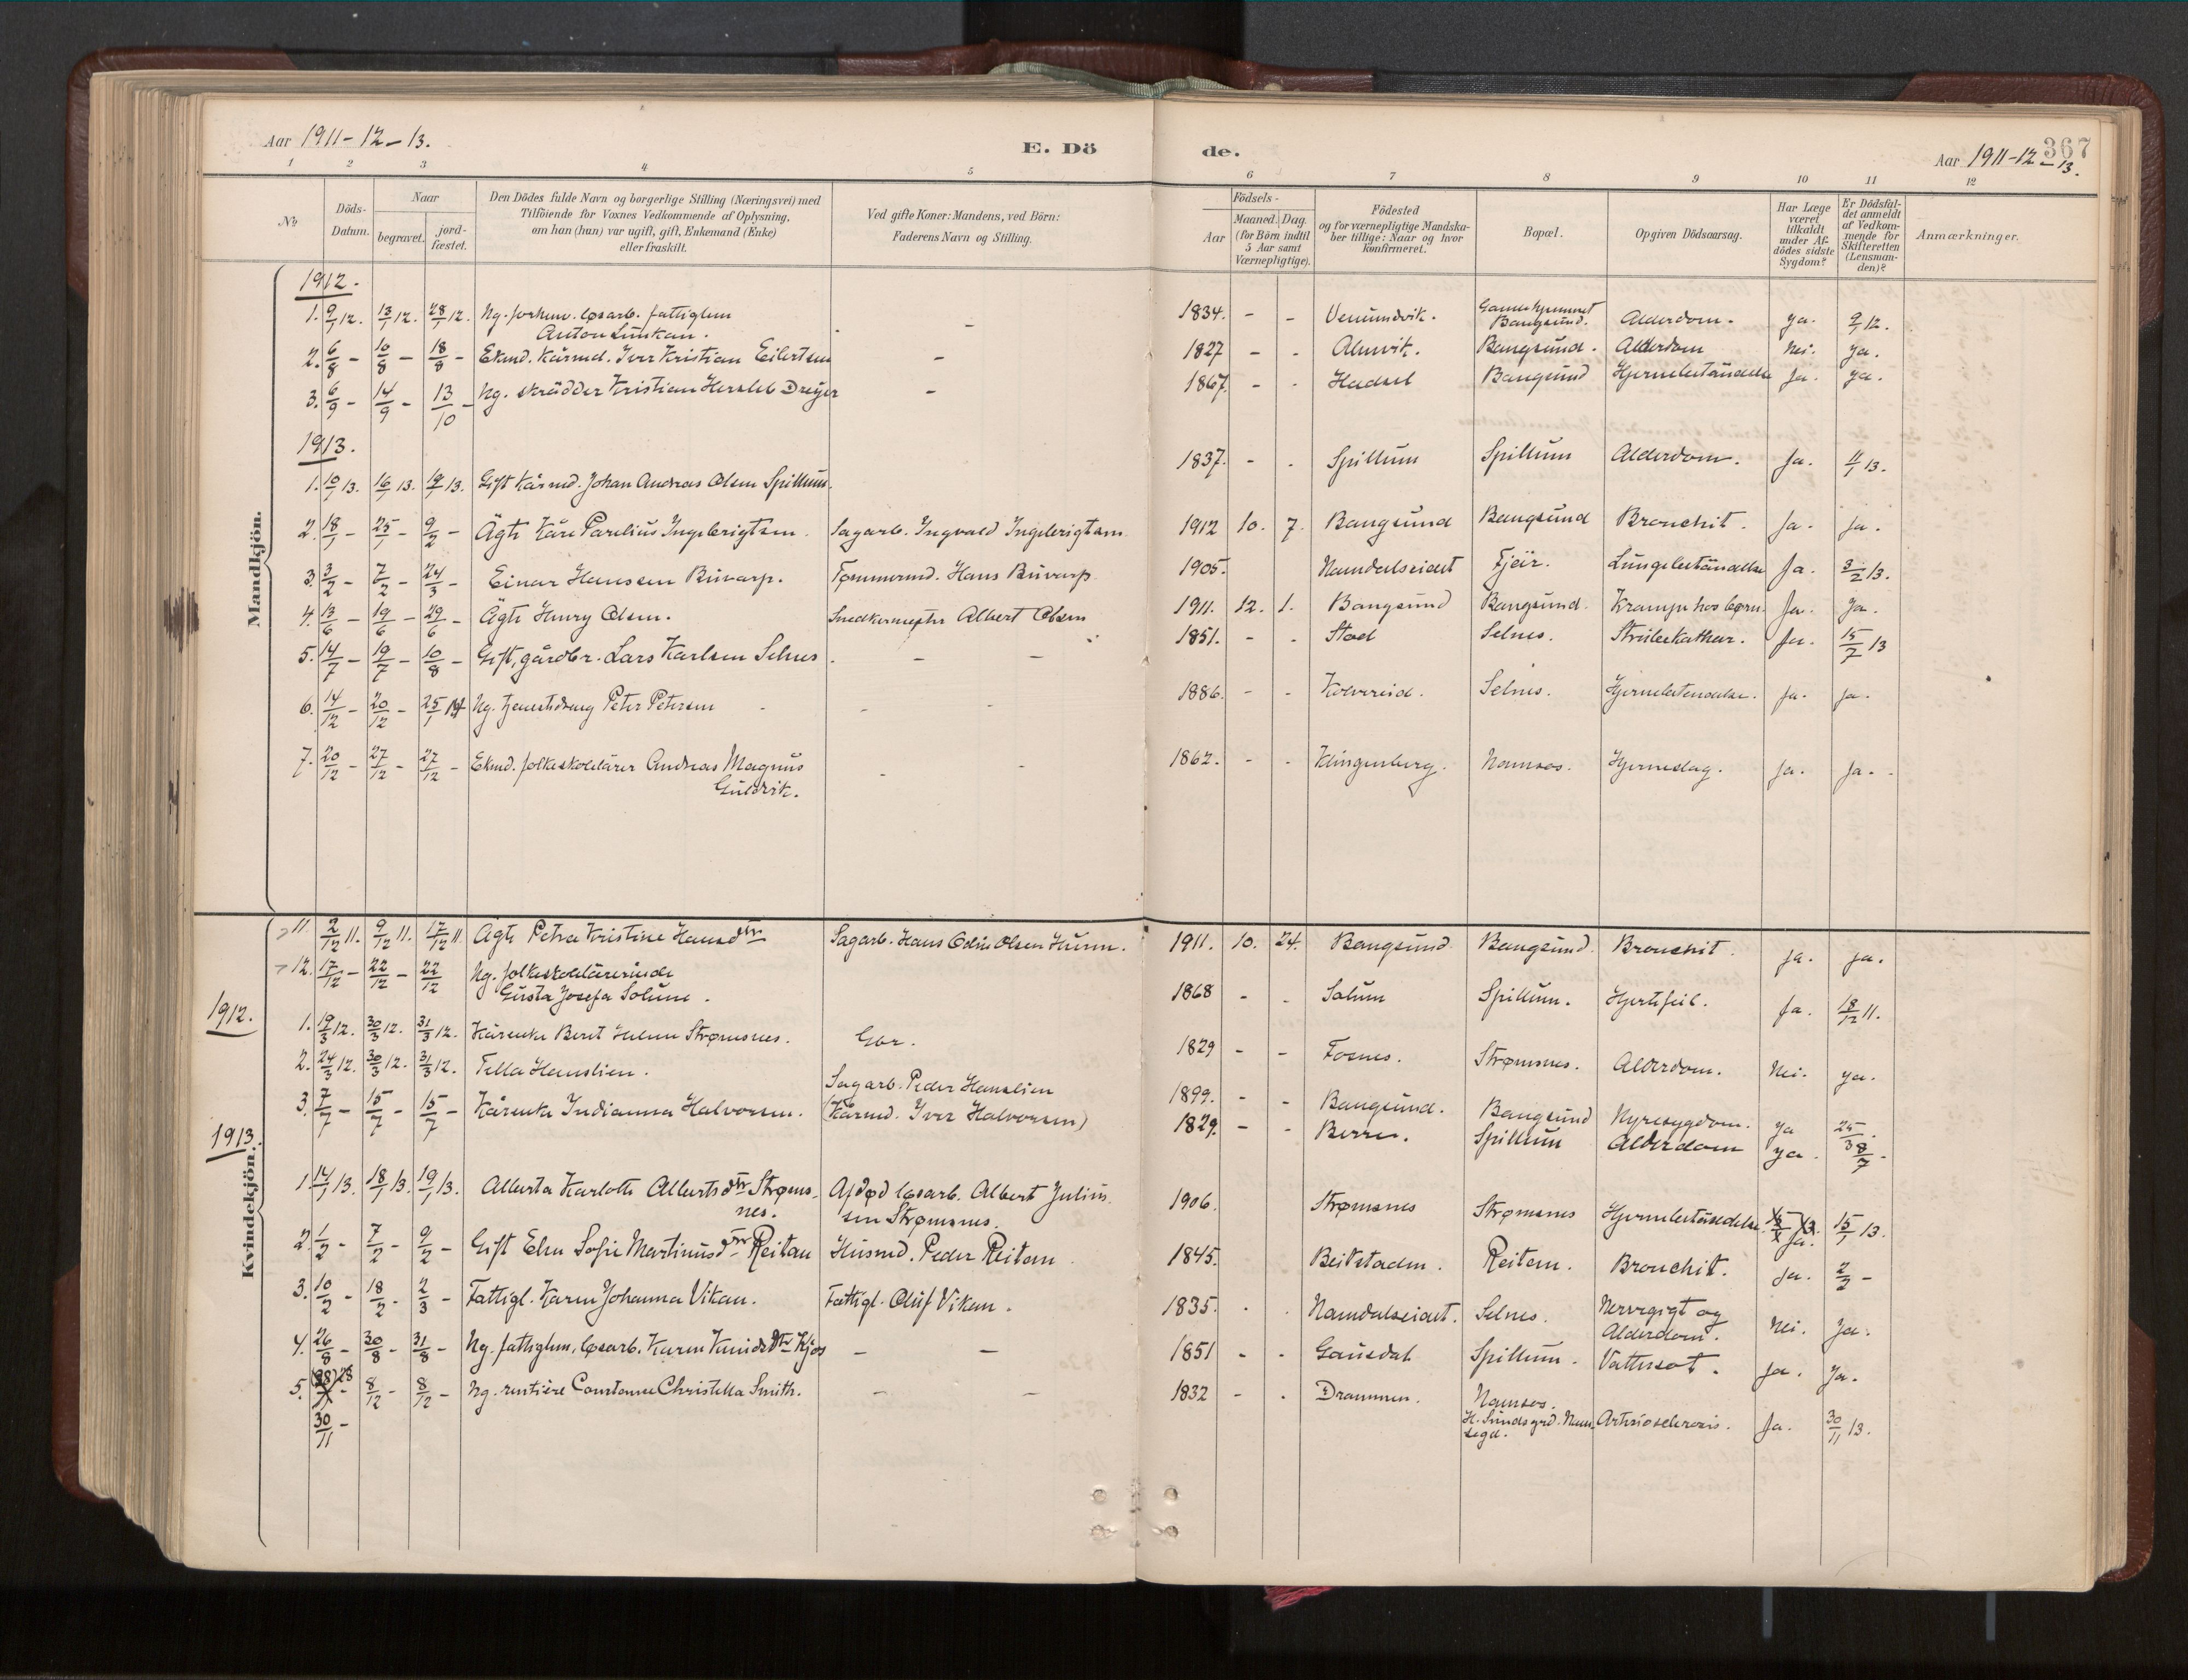 Aar 1911-12-13.
E. Dö
de.
367
Aar 1911-12-13.
1 2 3 4 5 6 7 8 9 10 11 12
No
Döds-Datum.
Naar
begravet.
jord-fæstet.
Den Dödes fulde Navn og borgerlige Stilling (Næringsvei) med
Tilföiende for Voxnes Vedkommende af Oplysning,
om han (hun) var ugift, gift, Enkemand (Enke)
eller fraskilt.
Ved gifte Koner: Mandens, ved Börn:
Faderens Navn og Stilling.
Födsels-
Aar
Maaned. Dag.
(for Börn indtil
5 Aar samt
Værnepligtige).
Födested
og for værnepligtige Mandska-
ber tillige: Naar og hvor
konfirmeret.
Bopæl.
Opgiven Dödsaarsag.
Har Læge
været
tilkaldt
under Af-
dödes sidste
Sygdom?
Er Dödsfal-
det anmeldt
af Vedkom-
mende for
Skifteretten
(Lensman-
den)?
Anmærkninger.
Mandkjön.
1912.
1. 9/1 12. 13/1 12. 28/1 12. Ug. forhenv. løsarb. fattiglem Anton Linskan. - 1834. - - Vemundvik. Gamlehjemmet Bangsund. Alderdom. ja. 9/1 12.
2. 6/8 - 10/8 - 18/8 - Ekmd. Kårmd. Iver Kristian Eilertsen - 1827 - - Almvik. Bangsund. Alderdom Nei. ja.
3. 6/9 - 14/9 - 13/10 - Ug. skrædder Kristian Hersleb Dreyer - 1867. - - Hadsel Bangsund Hjernebetændelse Ja. ja.
1913.
1. 10/1 13. 16/1 13. 19/1 13. Gift Kårmd. Johan Andreas Olsen Spillum. 1837. - - Spillum Spillum Alderdom. Ja. 11/1 13.
2. 18/1 - 25/1 - 9/2 - Ägte Kåre Parelius Ingebrigtsen. Sagarb. Ingvald Ingebrigtsen 1912 10. 7. Bangsund Bangsund Bronchit. Ja. Ja.
3. 3/2 - 7/2 - 24/3 - Einar Hanssen Buvarp. Tømmermd. Hans Buvarp. 1905. Namdalseidet Fjær. Lungebetændelse Ja. 3/2 13.
4. 13/6 - 19/6 - 29/6 - Ägte Henry Olsen. Snedkermester Albert Olsen 1911. 12. 1. Bangsund Bangsund. Krampe hos børn. Ja. Ja.
5. 14/7 - 19/7 - 10/8 - Gift, gårdbr. Lars Karlsen Selnes. - - 1851. - - Stod Selnes. Strubekathar. Ja. 15/7 13
6. 14/12 - 20/12 - 25/1 14 Ug. tjenestdreng Peter Petersen - - - 1886. - - Kolvereid. Selnes. Hjernebetendelse. Ja. Ja.
7. 20/12 - 27/12 - 27/12 - Ekmd. folkeskolelærer Andreas Magnus Guldvik. - - 1862. - - Klingenberg. Namsos. Hjerneslag. Ja. Ja.
Kvindekjön.
11. 2/12 11. 9/12 11. 17/12 11. Ägte Petra Kristine Hansdtr Sagarb. Hans Odin Olsen Hunn. 1911. 10. 24. Bangsund Bangsund. Bronchit. ja. ja.
12. 17/12 - 22/12 - 22/12 Ug. folkeskolelærerinde Gusta Josefa Solum. 1868 - - Solum Spillum. Hjertefeil. Ja. 18/12 11.
1912.
1. 19/3 12. 30/3 12. 31/3 12. Kårenke Beret Helene Strømsnes. Gbr. 1829 - - Fosnes. Strømsnes. Alderdom. Nei. ja.
2. 24/3 12. 30/3 12. 31/3 12. Tella Hanslien. Sagarb. Peder Hanslien 1899. - - Bangsund. Bangsund Nyresygdom. ja 25/3.
3. 7/7 - 15/7 - 15/7 - Kårenke Indianna Halvorsen. (Kårmd. Iver Halvorsen) 1829. - - Berre. Spillum Alderdom ja. 8/7 -
1913.
1. 14/1 13. 18/1 13. 19/1 13. Alberta Karlotte Albertsdtr Strømsnes. Afdød løsarb. Albert Juliussen Strømsnes. 1906. Strømsnes Strømsnes Hjernebetændelse. Ja. 15/1 13.
2. 1/2 - 7/2 - 9/2 - Gift Elen Sofie Martinusdtr Reitan Husmd. Peder Reitan 1845. Beitstaden. Reitan. Bronchit. Ja. 2/2 -
3. 10/2 - 18/2 - 2/3 - Fattigl. Karen Johanna Vikan. Fattigl. Oluf Vikan. 1835. - - Namdalseidet. Selnes. Nervegigt og Alderdom. Nei. Ja.
4. 26/8 - 30/8 - 31/8 - Ug. fattiglem, løsarb. Karen Knudsdtr Kjos - - 1851 - - Gausdal Spillum. Vattersot. Ja. Ja.
5. 30/11 - 8/12 - 8/12 - Ug. rentière Constanse Christella Smith. - - 1832 - - Drammen. Namsos. H. Sundsgrd. Namsogd. Arteriosclerosis. Ja. 30/11 13.